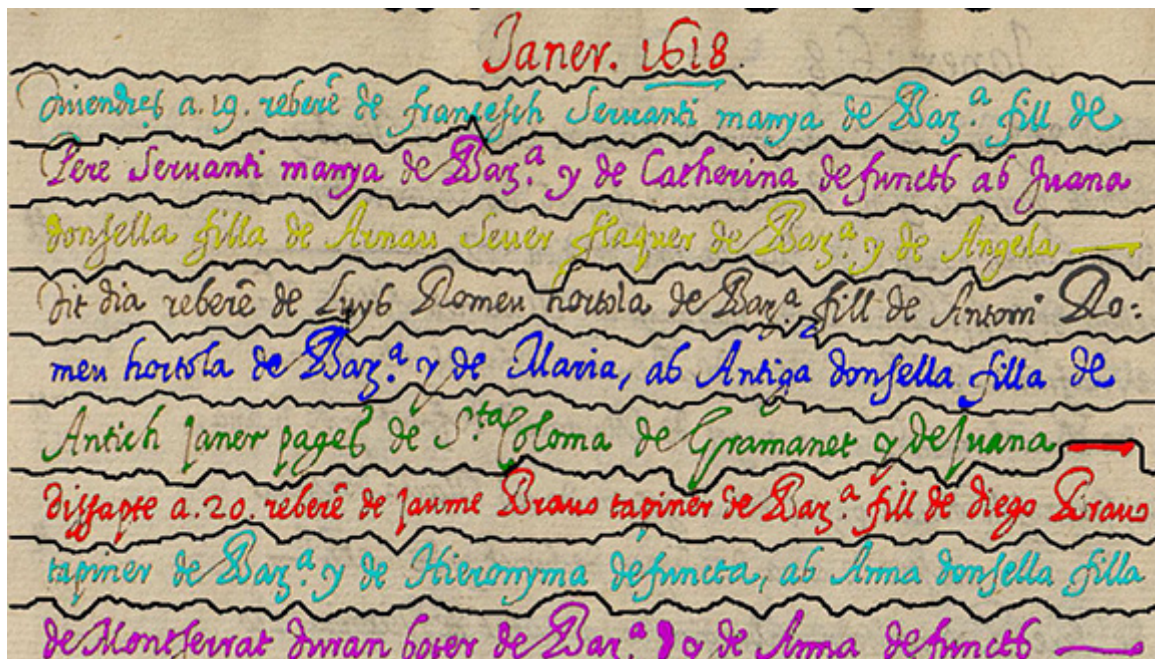 Janer. 1618
diuendres a. 19. reberê de fransesch Seruanti manya de Barª. fill de
Pere Seruanti manya de Barª. y de Catherina defuncts ab Juana
donsella filla de Arnau Seuer flaquer de Barª. y de Angela
Dit dia reberê de Luys Romeu hortola de Barª. fill de Antoni Ro:
meu hortola de Barª. y de Maria, ab Antiga donsella filla de
Antich Janer pages de Sta Coloma de Gramanet y de Juana
dissapte a. 20. reberê de Jaume Braus tapiner de Barª. fill de diego Braus
tapiner de Barª. y de Hieronyma defuncta, ab Anna donsella filla
de Montserrat duran boter de Barª. y de Anna defuncts